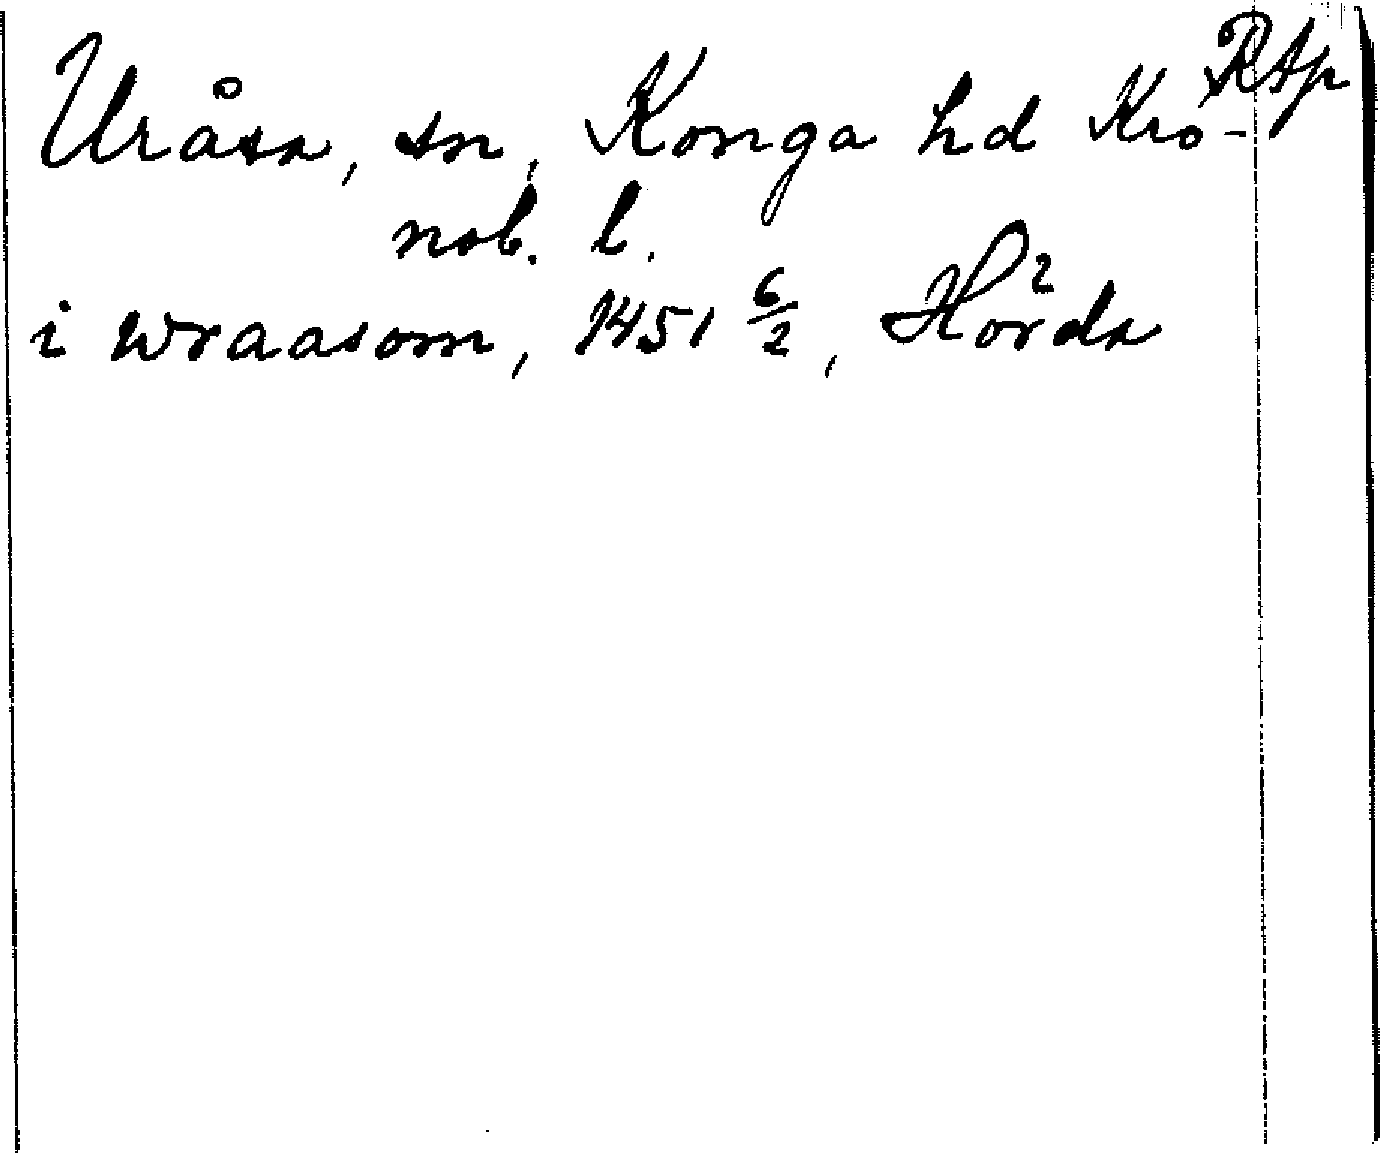 RAp
Uråsa, sn, Konga hd Kro-
nob. l.
i wraasom, 1451 6/2, Hörda